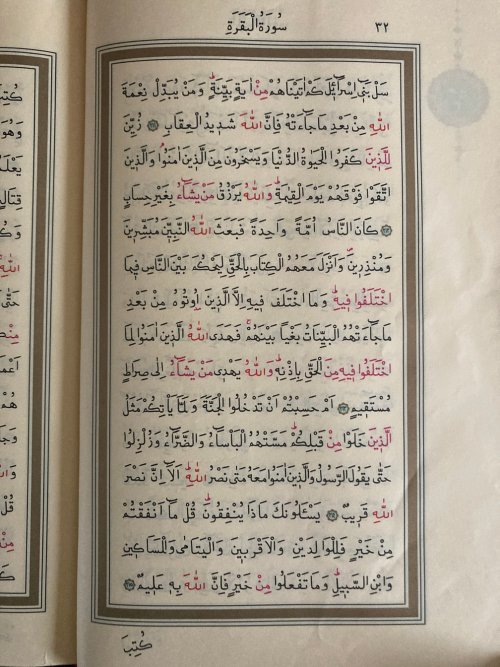 ٣٢
سُورَةُ الْبَقَرَةِ
سَلْ بَنٖٓي اِسْرَٓائٖلَ كَمْ اٰتَيْنَاهُمْ مِنْ اٰيَةٍ بَيِّنَةٍ وَمَنْ يُبَدِّلْ نِعْمَةَ
اللّٰهِ مِنْ بَعْدِ مَا جَٓاءَتْهُ فَاِنَّ اللّٰهَ شَدٖيدُ الْعِقَابِ ۝ زُيِّنَ
لِلَّذٖينَ كَفَرُوا الْحَيٰوةُ الدُّنْيَا وَيَسْخَرُونَ مِنَ الَّذٖينَ اٰمَنُواۘ وَالَّذٖينَ
اتَّقَوْا فَوْقَهُمْ يَوْمَ الْقِيٰمَةِ وَاللّٰهُ يَرْزُقُ مَنْ يَشَٓاءُ بِغَيْرِ حِسَابٍ
۝ كَانَ النَّاسُ اُمَّةً وَاحِدَةً فَبَعَثَ اللّٰهُ النَّبِيّٖنَ مُبَشِّرٖينَ
وَمُنْذِرٖينَ وَاَنْزَلَ مَعَهُمُ الْكِتَابَ بِالْحَقِّ لِيَحْكُمَ بَيْنَ النَّاسِ فٖيمَا
اخْتَلَفُوا فٖيهِ وَمَا اخْتَلَفَ فٖيهِ اِلَّا الَّذٖينَ اُو۫تُوهُ مِنْ بَعْدِ
مَا جَٓاءَتْهُمُ الْبَيِّنَاتُ بَغْيًا بَيْنَهُمْ فَهَدَى اللّٰهُ الَّذٖينَ اٰمَنُوا لِمَا
اخْتَلَفُوا فٖيهِ مِنَ الْحَقِّ بِاِذْنِهٖ وَاللّٰهُ يَهْدٖي مَنْ يَشَٓاءُ اِلٰى صِرَاطٍ
مُسْتَقٖيمٍ ۝ اَمْ حَسِبْتُمْ اَنْ تَدْخُلُوا الْجَنَّةَ وَلَمَّا يَأْتِكُمْ مَثَلُ
الَّذٖينَ خَلَوْا مِنْ قَبْلِكُمْ مَسَّتْهُمُ الْبَأْسَٓاءُ وَالضَّرَّٓاءُ وَزُلْزِلُوا
حَتّٰى يَقُولَ الرَّسُولُ وَالَّذٖينَ اٰمَنُوا مَعَهُ مَتٰى نَصْرُ اللّٰهِ اَلَٓا اِنَّ نَصْرَ
اللّٰهِ قَرٖيبٌ ۝ يَسْـَٔلُونَكَ مَاذَا يُنْفِقُونَ قُلْ مَٓا اَنْفَقْتُمْ
مِنْ خَيْرٍ فَلِلْوَالِدَيْنِ وَالْاَقْرَبٖينَ وَالْيَتَامٰى وَالْمَسَاكٖينِ
وَابْنِ السَّبٖيلِ وَمَا تَفْعَلُوا مِنْ خَيْرٍ فَاِنَّ اللّٰهَ بِهٖ عَلٖيمٌ ۝
كُتِبَ